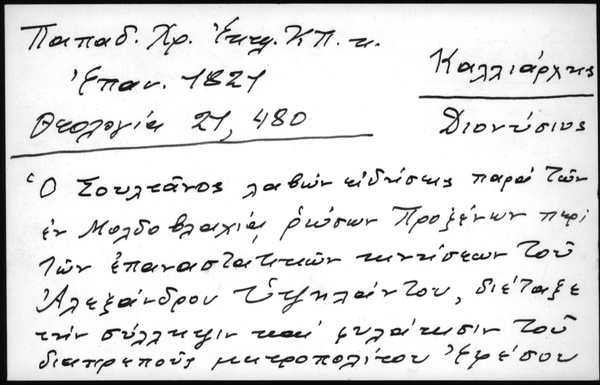 Παπαδ. Χρ. Ἐκκλ. ΚΠ. κ.
Ἐπαν. 1821
Θεολογία 21, 480
Καλλιάρχης
Διονύσιος
Ὁ Σουλτᾶνος λαβὼν εἰδήσεις παρὰ τῶν
ἐν Μολδοβλαχίᾳ ῥώσων Προξένων περὶ
τῶν ἐπαναστατικῶν κινήσεων τοῦ
Ἀλεξάνδρου Ὑψηλάντου, διέταξε
τὴν σύλληψιν καὶ φυλάκισιν τοῦ
διαπρεποῦς μητροπολίτου Ἐφέσου